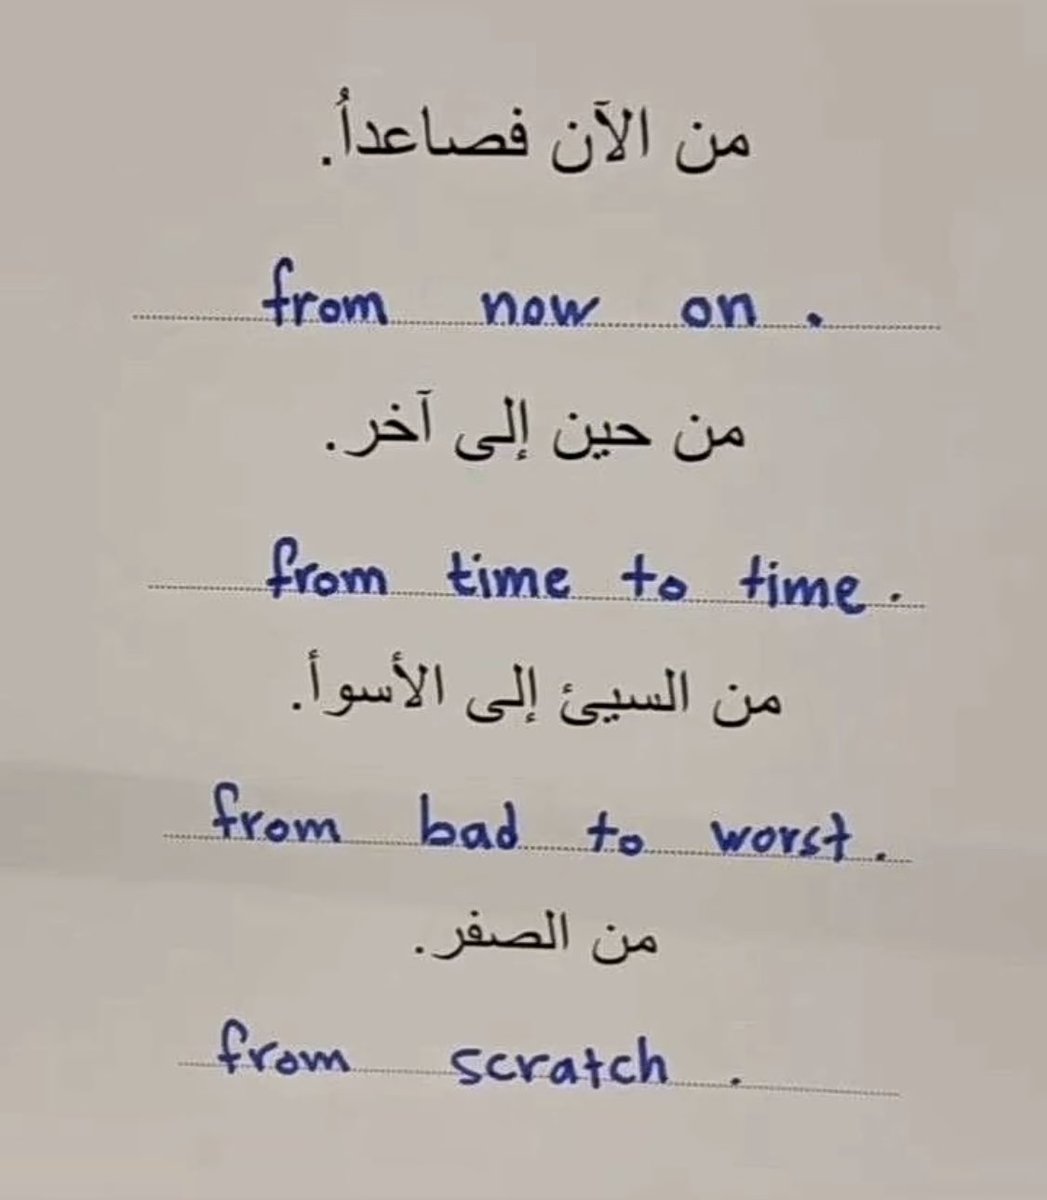 من الآن فصاعداُ.
from now on .
من حين إلى آخر.
from time to time.
من السيئ إلى الأسوأ.
from bad to worst.
من الصفر.
from scratch .